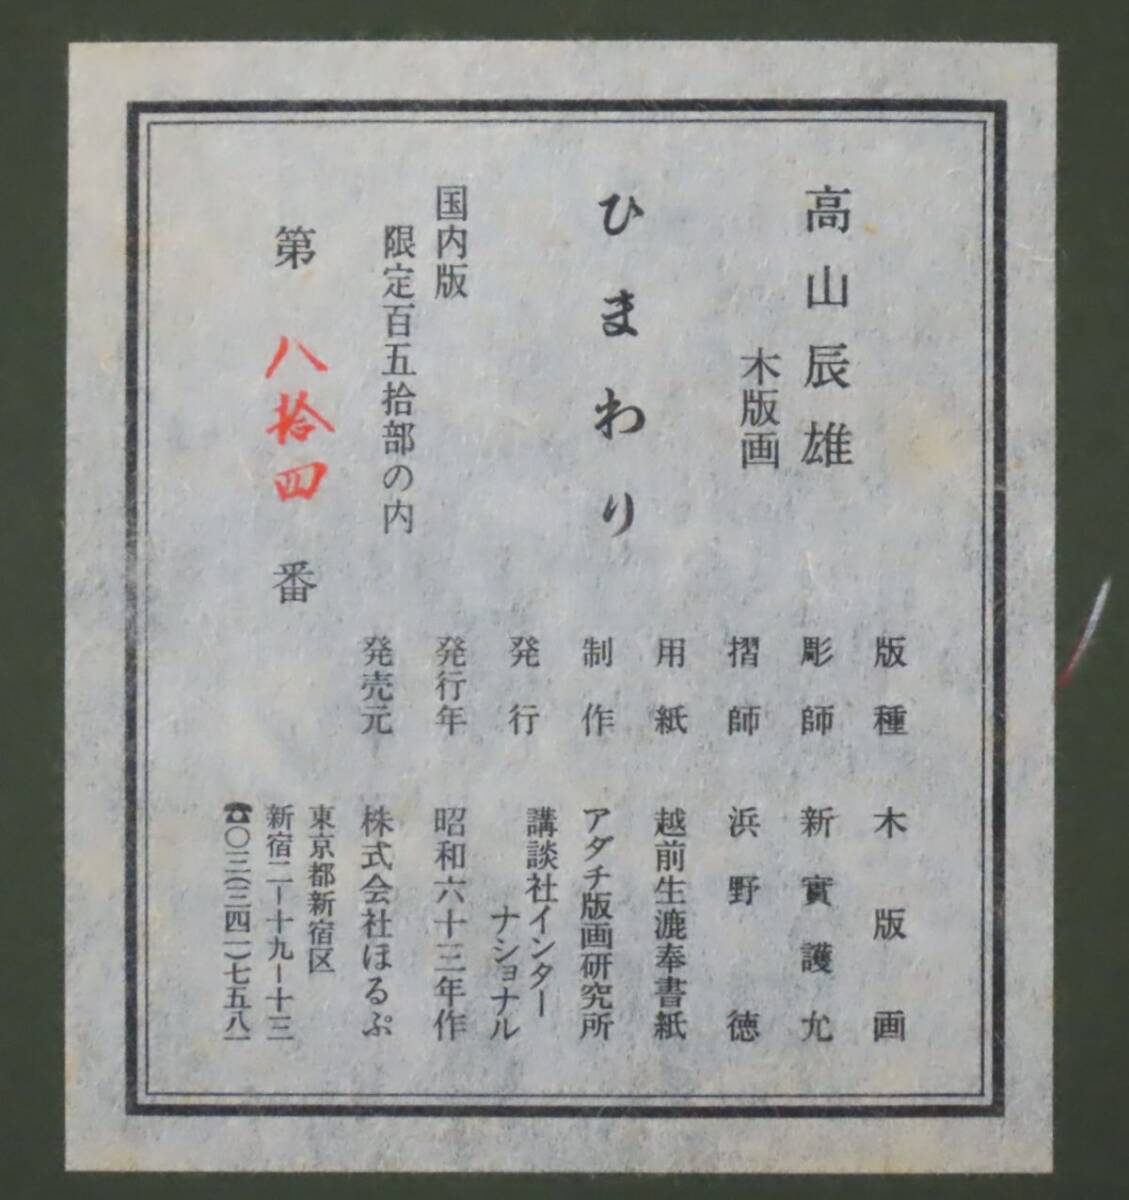 高山辰雄
木版画
ひまわり
国内版
限定百五拾部の内
第 八拾四 番
版種 木版画
彫師 新實護允
摺師 浜野徳
用紙 越前生漉奉書紙
制作 アダチ版画研究所
発行 講談社インター
ナショナル
発行年 昭和六十三年作
発売元 株式会社ほるぷ
東京都新宿区
新宿二ー十九ー十三
☎〇三(三四一)七五八一